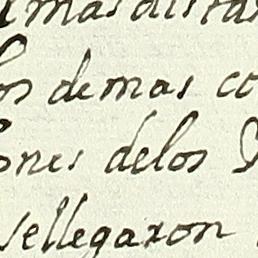 mas distas
os demas co
ones delos
sellegaron